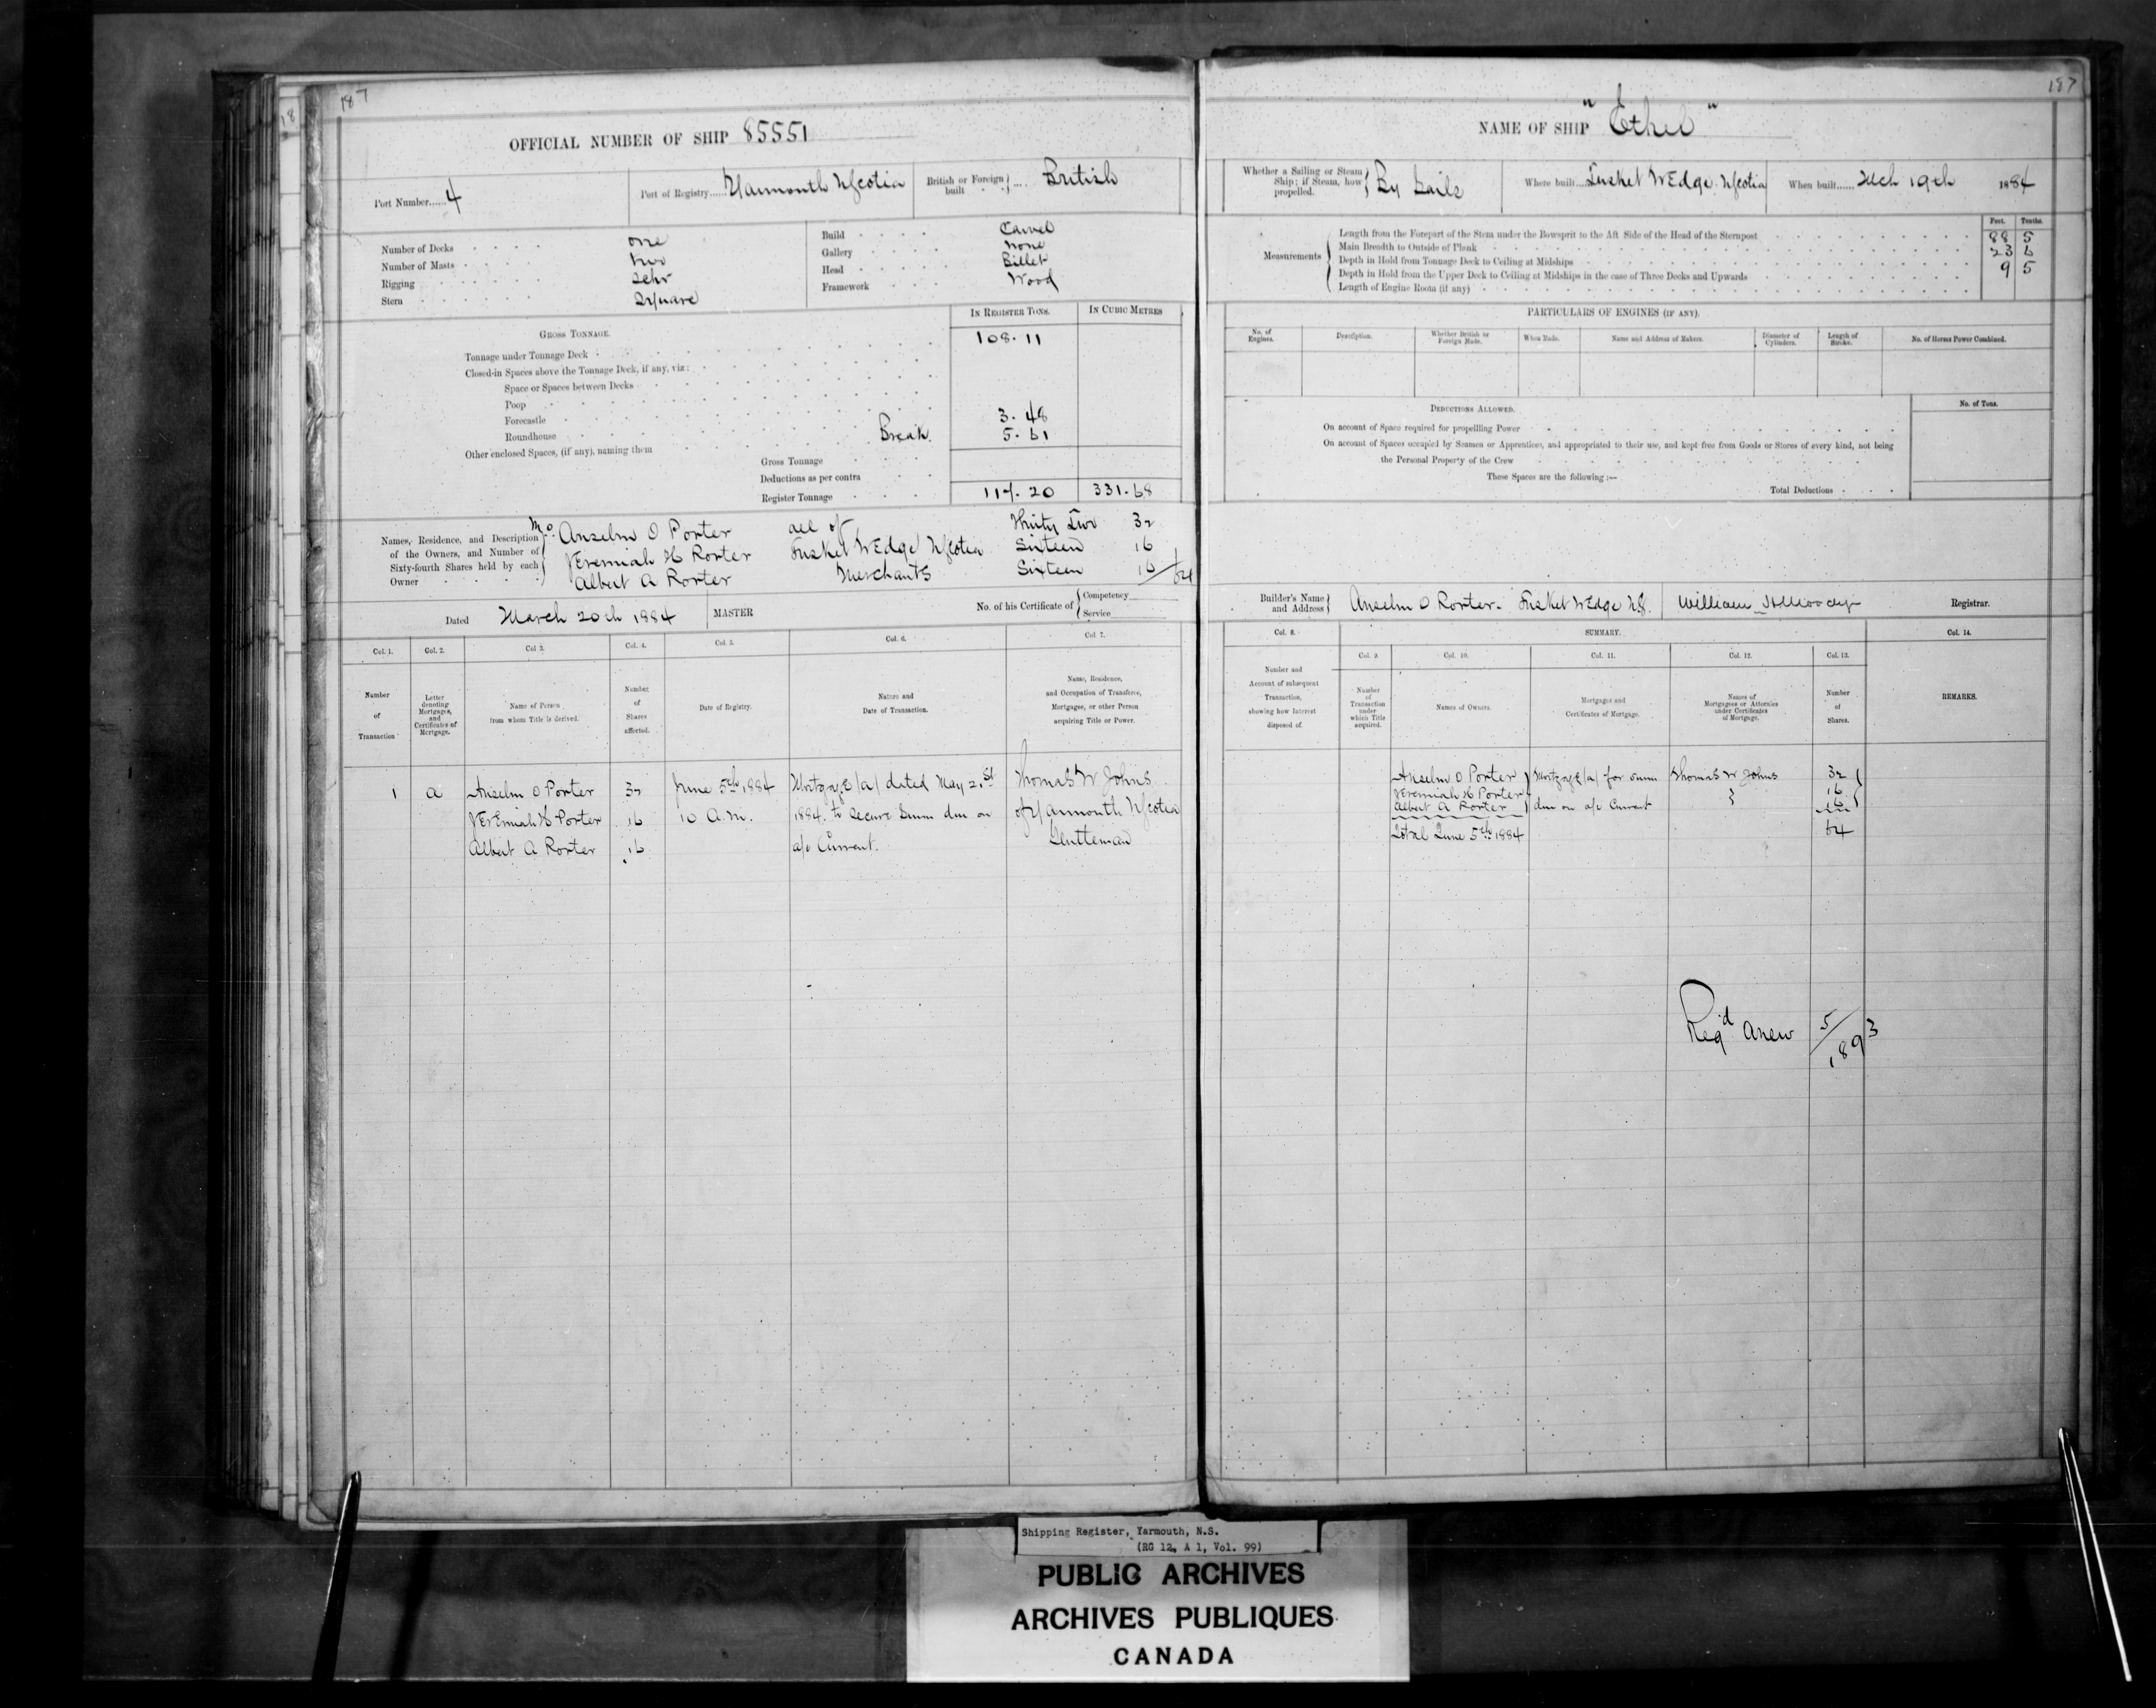 187
187
18
OFFICIAL NUMBER OF SHIP 85551
NAME OF SHIP "Ethel"
Port Number 4
Port of Registry Yarmouth NScotia
British or Foreign built British
Whether a Sailing or Steam Ship; if Steam, how propelled. By Sails
Where built Tusket Wedge. NScotia
When built Mch 19th 1884
Number of Decks one
Number of Masts two
Rigging Schr
Stern Square
Build Carvel
Gallery none
Head Billet
Framework Wood
Measurements
Feet. Tenths.
Length from the Forepart of the Stem under the Bowsprit to the Aft Side of the Head of the Sternpost 88 5
Main Breadth to Outside of Plank 23 6
Depth in Hold from Tonnage Deck to Ceiling at Midships 9 5
Depth in Hold from the Upper Deck to Ceiling at Midships in the case of Three Decks and Upwards
Length of Engine Room (if any)
GROSS TONNAGE.
IN REGISTER TONS. IN CUBIC METRES
Tonnage under Tonnage Deck 108.11
Closed-in Spaces above the Tonnage Deck, if any, viz:
Space or Spaces between Decks
Poop
Forecastle 3.48
Roundhouse Break. 5.61
Other enclosed Spaces, (if any), naming them
Gross Tonnage
Deductions as per contra
Register Tonnage 117.20 331.68
PARTICULARS OF ENGINES (IF ANY).
No. of Engines. Description. Whether British or Foreign Made. When Made. Name and Address of Makers. Diameter of Cylinders. Length of Stroke. No. of Horses Power Combined.
DEDUCTIONS ALLOWED. No. of Tons.
On account of Space required for propelling Power
On account of Spaces occupied by Seamen or Apprentices, and appropriated to their use, and kept free from Goods or Stores of every kind, not being
the Personal Property of the Crew
These Spaces are the following:—
Total Deductions
Names, Residence, and Description
of the Owners, and Number of
Sixty-fourth Shares held by each
Owner
Anselm O Porter all of Thirty Two 32
Jeremiah H Porter Tusket Wedge NScotia Sixteen 16
Albert A Porter Merchants Sixteen 16/64
Dated March 20th 1884 MASTER
No. of his Certificate of Competency
Service
Builder's Name and Address Anselm O Porter. Tusket Wedge NS.
William H Moody Registrar.
Col. 1. Col. 2. Col. 3. Col. 4. Col. 5. Col. 6. Col. 7.
Number of Transaction
Letter denoting Mortgages, and Certificates of Mortgage.
Name of Person from whom Title is derived.
Number of Shares affected.
Date of Registry.
Nature and Date of Transaction.
Name, Residence, and Occupation of Transferee, Mortgagee, or other Person acquiring Title or Power.
1 a Anselm O Porter 32 June 5th 1884 Mortgage (a) dated May 21st Thomas W Johns
Jeremiah H Porter 16 10 A.m. 1884. to secure Summ due on of Yarmouth NScotia
Albert A Porter 16 a/c Current. Gentleman
Col. 8. SUMMARY. Col. 14.
Col. 9. Col. 10. Col. 11. Col. 12. Col. 13.
Number and Account of subsequent Transaction, showing how Interest disposed of.
Number of Transaction under which Title acquired.
Names of Owners.
Mortgages and Certificates of Mortgage.
Names of Mortgagees or Attornies under Certificates of Mortgage.
Number of Shares.
REMARKS.
Anselm O Porter Mortgage (a) for summ Thomas W Johns 32
Jeremiah H Porter 16
Albert A Porter due on a/c Current 16
Total June 5th 1884 64
Regd anew 5/1893
Shipping Register, Yarmouth, N.S.
(RG 12, A 1, Vol. 99)
PUBLIC ARCHIVES
ARCHIVES PUBLIQUES
CANADA